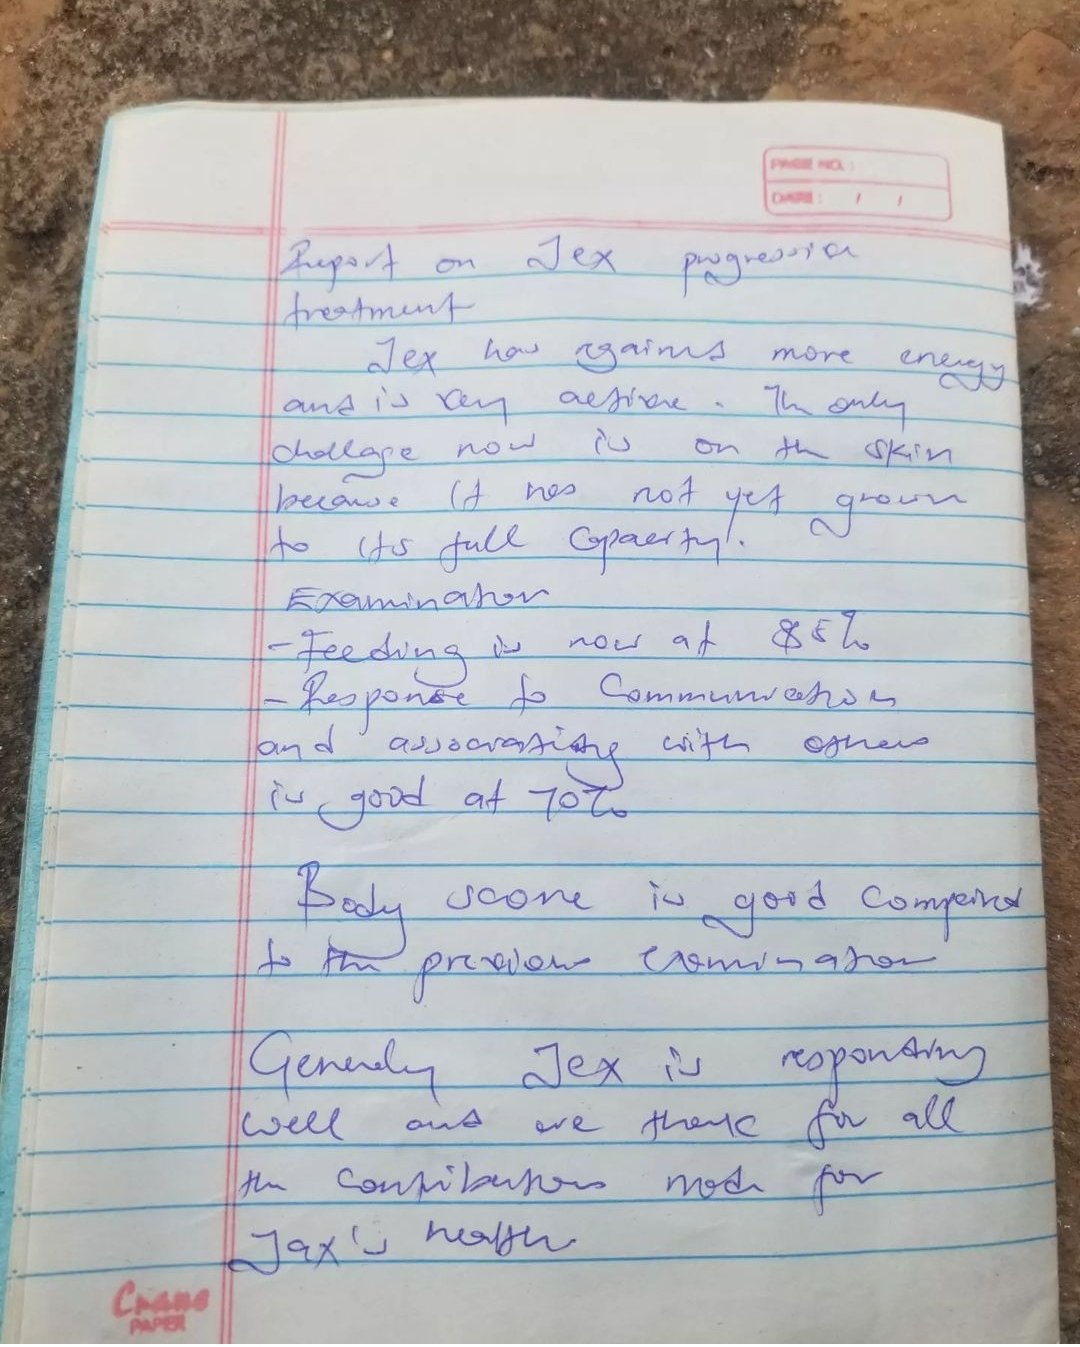 PAGE NO. :
DATE : / /
Report on Jex progressive
treatment
Jex has regained more energy
and is very active. The only
challage now is on the skin
because it has not yet grown
to its full capacity.
Examination
- Feeding is now at 85%
- Response to Communication
and associating with others
is good at 70%
Body score is good compared
to the previous examination
Generaly Jex is responding
well and we thank for all
the contributions made for
Jax's health
Crane
PAPER